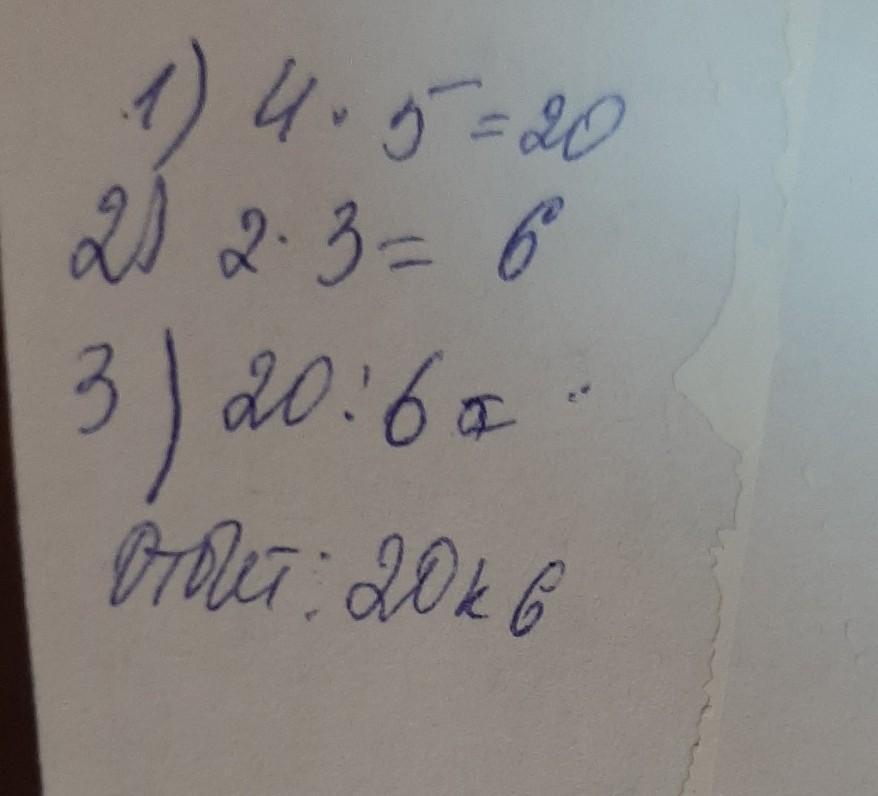 1) 4 · 5 = 20
2) 2 · 3 = 6
3) 20 : 6 =
Ответ: 20 к 6